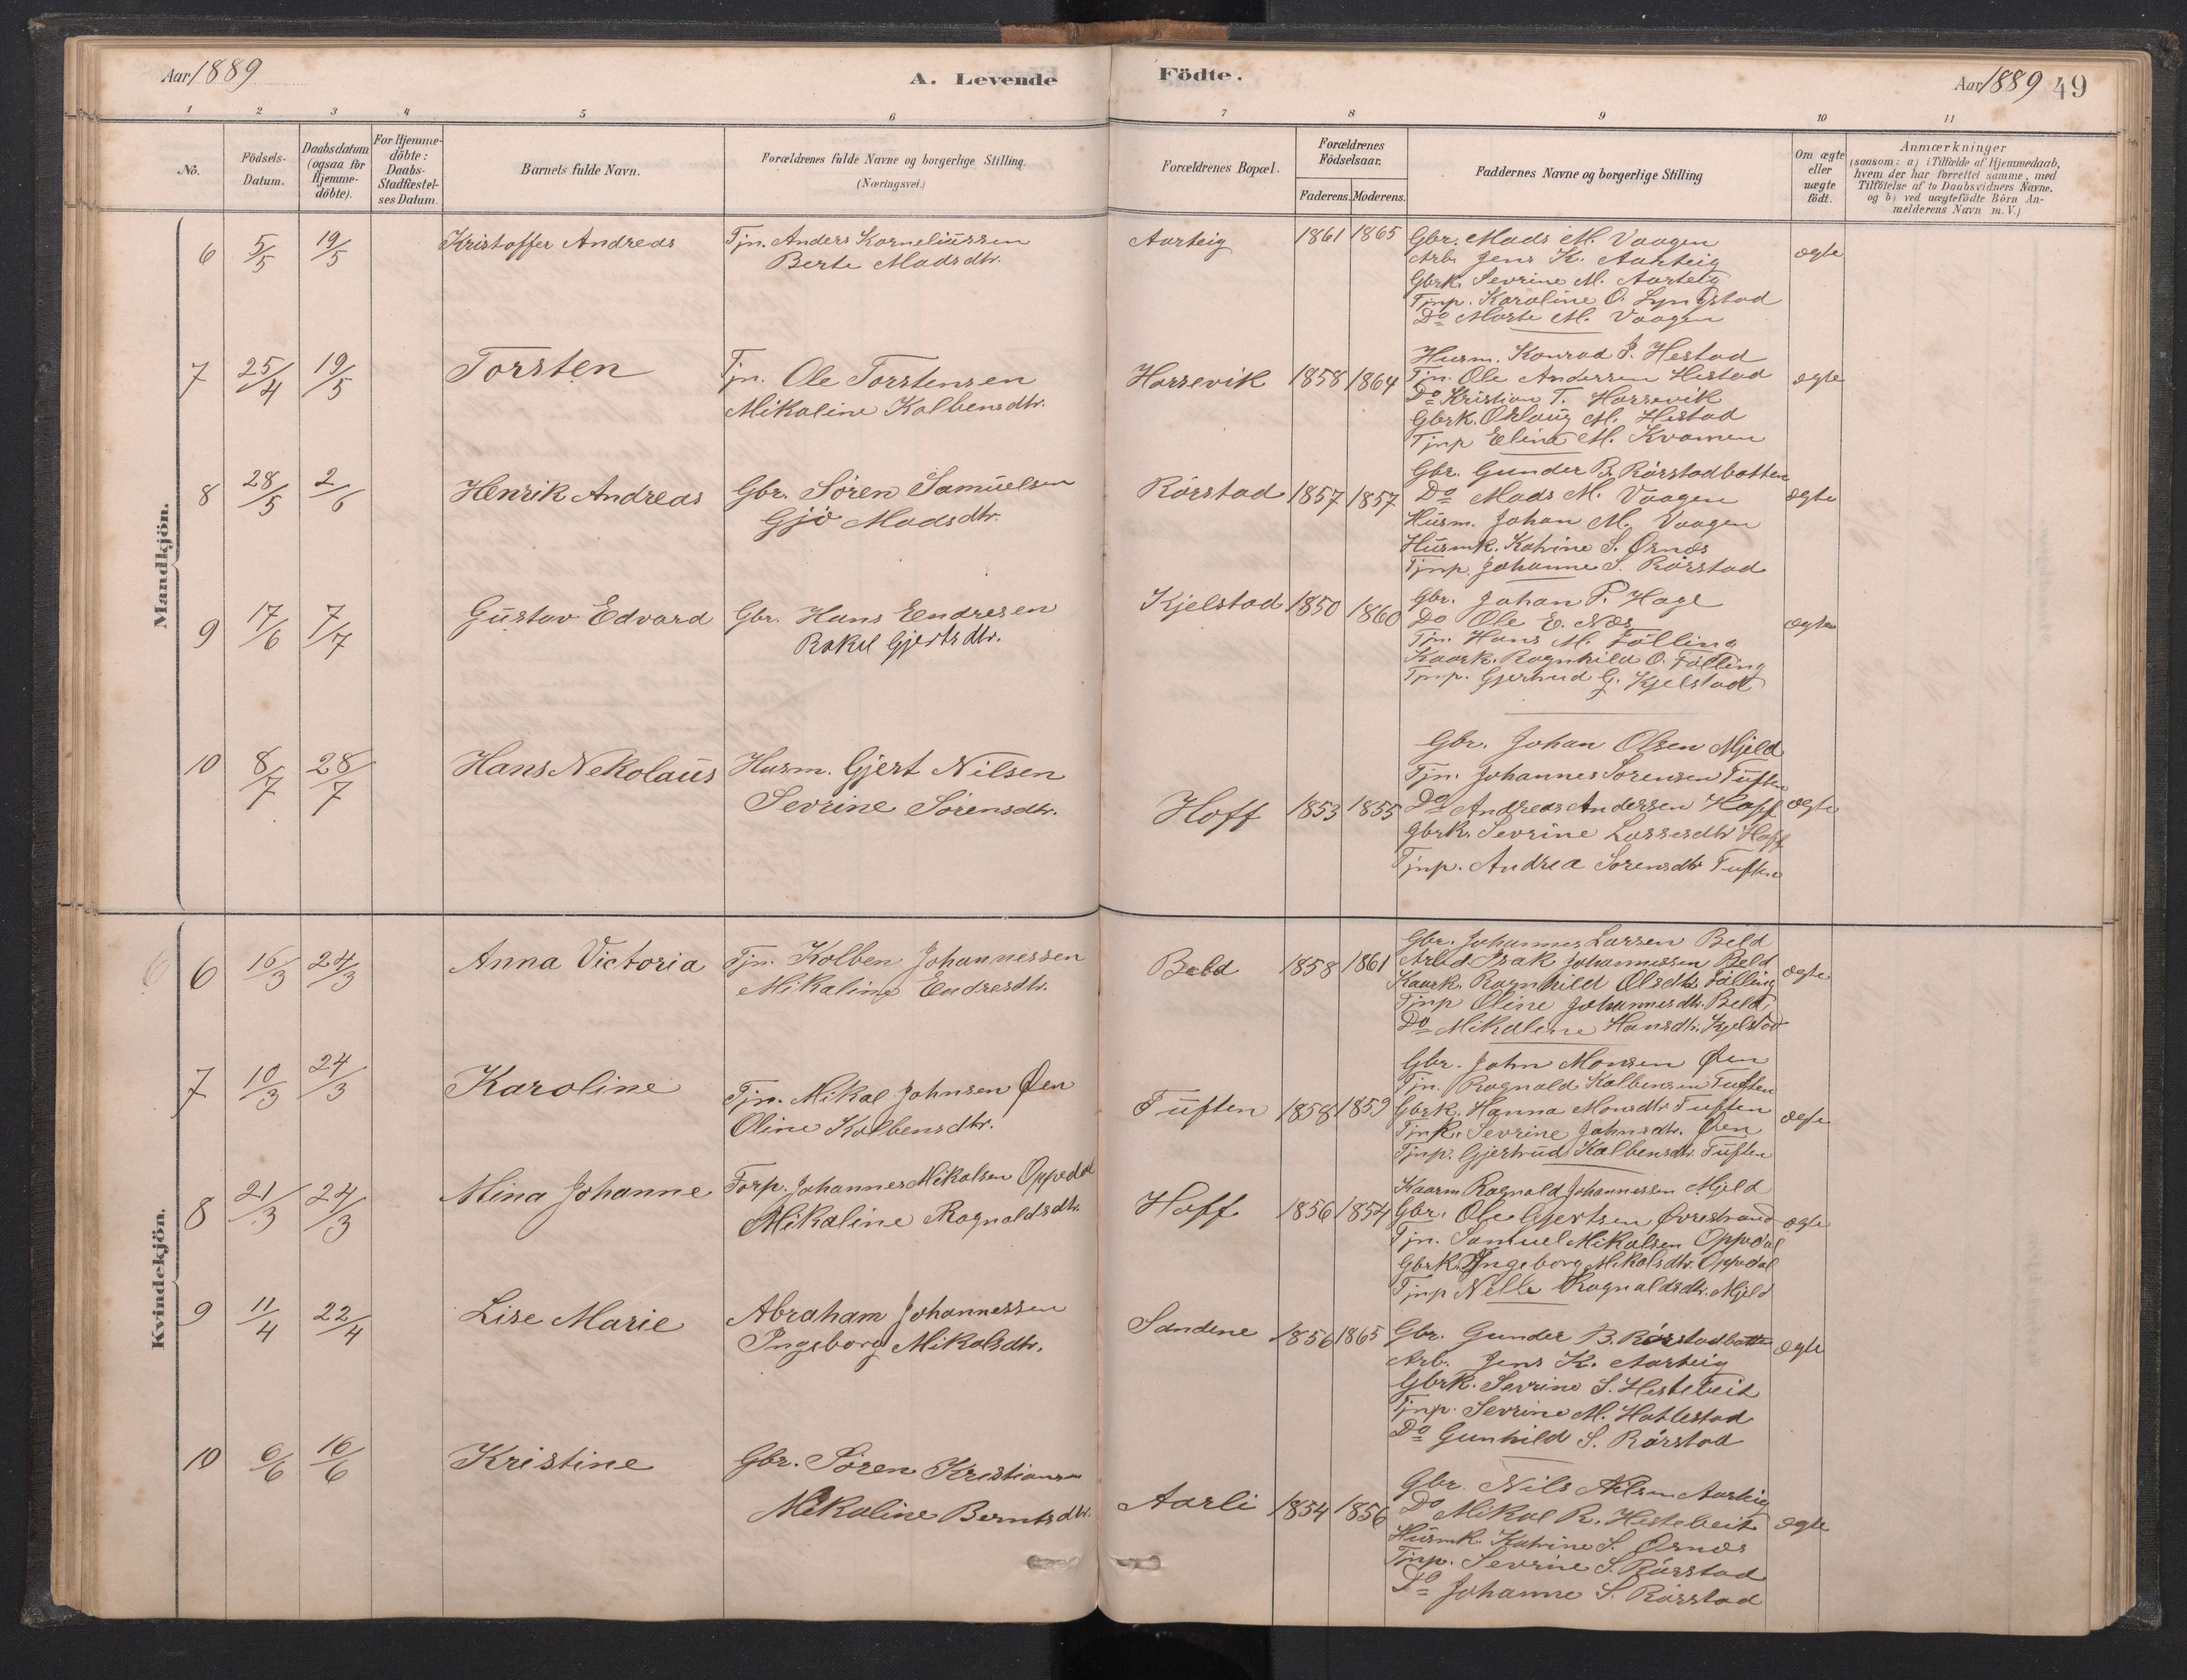 Aar 1889
A. Levende
Födte.
Aar 1889
49
1 2 3 4 5 6 7 8 9 10 11
No.
Födsels-Datum.
Daabsdatum (ogsaa for Hjemme-döbte).
For Hjemme-döbte: Daabs-Stadfæstel-ses Datum.
Barnets fulde Navn.
Forældrenes fulde Navne og borgerlige Stilling. (Næringsvei.)
Forældrenes Bopæl.
Forældrenes Födselsaar.
Faderens. Moderens.
Faddernes Navne og borgerlige Stilling
Om ægte eller uægte födt.
Anmærkninger
(saasom: a) i Tilfælde af Hjemmedaab,
hvem der har forrettet samme, med
Tilföielse af to Daabsvidners Navne.
og b) ved uægtefödte Börn An-
melderens Navn m. V.)
Mandkjön.
6 5/5 19/5 Kristoffer Andreas Tjn. Anders Korneliussen Aarteig 1861 1865 Gbr. Mads M. Vaagen ægte
Berte Madsdtr. Arb. Jens K. Aarteig
Gbrk. Sevrine M. Aarteig
Tjnp. Karoline O. Lyngstad
Do Marte M. Vaagen
7 25/4 19/5 Torsten Tjn. Ole Torstensen Horsevik 1858 1864 Husm. Konrad J. Hestad ægte
Mikaline Kolbensdtr. Tjn. Ole Andersen Hestad
Do Kristian T. Horsevik
Gbrk. Oslaug M. Hestad
Tjnp Eline M. Kvamen
8 28/5 2/6 Henrik Andreas Gbr. Sören Samuelsen Rörstad 1857 1857 Gbr. Gunder B. Rörstadbotten ægte
Gjö Madsdtr. Do Mads M. Vaagen
Husm. Johan M. Vaagen
Husmk. Katrine S. Osnæs
Tjnp. Johanne S. Rörstad
9 17/6 7/7 Gustav Edvard Gbr. Hans Endresen Kjelstad 1850 1860 Gbr. Johan P. Hage ægte
Rakel Gjertsdtr. Do Ole E. Næs
Tjn. Hans M. Fölling
Kaark. Ragnhild O. Fölling
Tjnp. Gjertrud G. Kjelstad
10 8/7 28/7 Hans Nekolaus Husm. Gjert Nilsen Hoff 1853 1855 Gbr. Johan Olsen Mjeld ægte
Sevrine Sörensdtr. Tjn. Johannes Sörensen Tuften
Do Andreas Andersen Hoff
Gbrk. Sevrine Lassesdtr Hoff
Tjnp. Andrea Sörensdtr Tuften
Kvindekjön.
6 6 16/3 24/3 Anna Victoria Tjn. Kolben Johannessen Beld 1858 1861 Gbr. Johannes Larsen Beld ægte
Mikaline Endresdtr. Arbd Isak Johannessen Beld
Kaark. Ragnhild Olsdtr. Fölling
Tjnp Oline Johannesdtr. Beld
Do Mikaline Hansdtr. Kjelstad
7 10/3 24/3 Karoline Tjn. Mikal Johnsen Øen Tuften 1858 1859 Gbr. John Monsen Øen ægte
Oline Kolbensdtr. Tjn. Ragnald Kolbensen Tuften
Gbrk. Hanna Monsdtr Tuften
Tjnk. Sevrine Johnsdtr. Øen
Tjnp. Gjertrud Kolbensdtr. Tuften
8 21/3 24/3 Mina Johanne Forp. Johannes Mikalsen Oppedal Hoff 1856 1854 Kaarm Ragnald Johannessen Mjeld ægte
Mikaline Ragnaldsdtr. Gbr. Ole Gjertsen Øvrestrand
Tjn. Samuel Mikalsen Oppedal
Gbrk. Ingeborg Mikalsdtr. Oppedal
Tjnp Nelle Ragnaldsdtr. Mjeld
9 11/4 22/4 Lise Marie Abraham Johannessen Sandene 1856 1865 Gbr. Gunder B. Rörstadbotten ægte
Ingeborg Mikalsdtr. Arb. Jens K. Aarteig
Gbrk. Sevrine S. Hestebeit
Tjnp. Sevrine M. Hatlestad
Do Gunhild S. Rörstad
10 6/6 16/6 Kristine Gbr. Sören Kristiansen Aarli 1854 1856 Gbr. Nils Nilsen Aarteig ægte
Mikaline Berntsdtr. Do Mikal R. Hestebeit
Husmk. Katrine S. Osnæs
Tjnp. Sevrine S. Rörstad
Do Johanne S. Rörstad